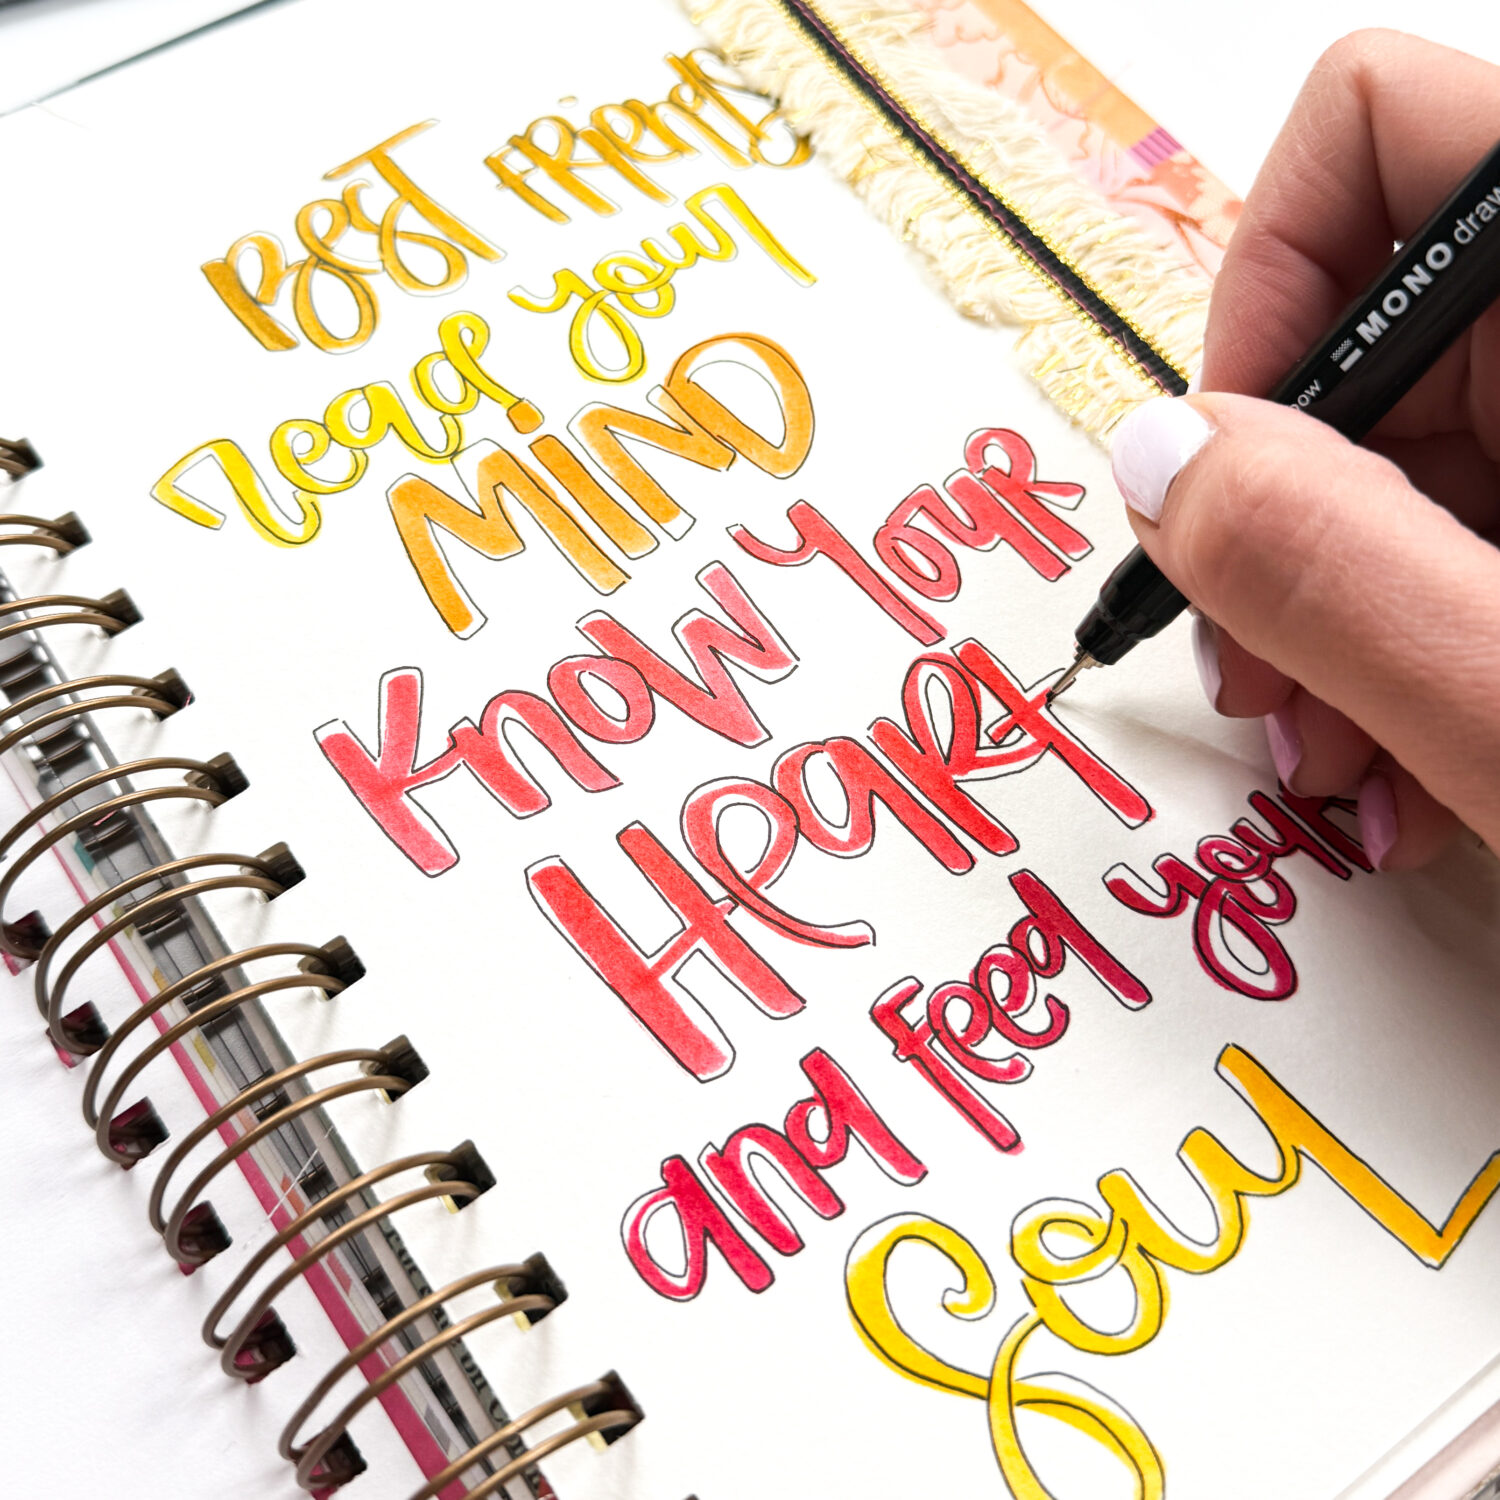 Best Friends
read your
MIND
Know Your
Heart
and Feed your
Soul
MONO draw